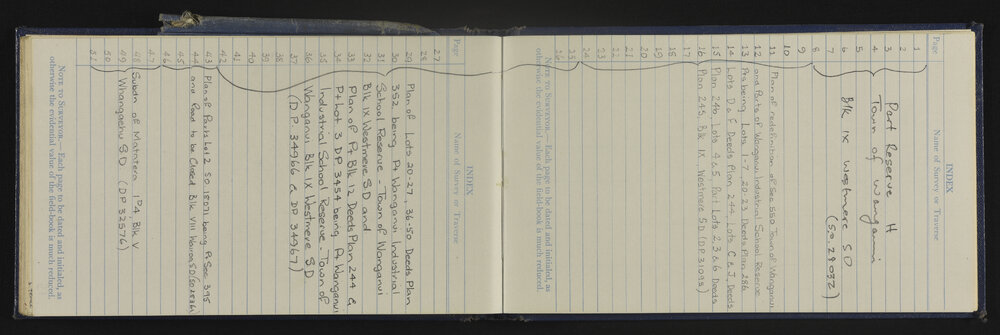 INDEX
Page
Name of Survey or Traverse
1
2
3 Part Reserve H
4 Town of Wanganui
5
6 Blk IX Westmere SD
7 (S.O. 29032)
8
9
10
11 Plan of redefinition of Sec 550 Town of Wanganui
12 and Parts of Wanganui Industrial School Reserve
13 Pts being Lots 1-7, 20-23 Deeds Plan 286
14 Lots D & F Deeds Plan 244, Lots C & J Deeds
15 Plan 246, Lots 4 & 5, Part Lots 2, 3 & 6 Deeds
16 Plan 245, Blk IX, Westmere SD (DP 31098)
17
18
19
20
21
22
23
24
25
26
NOTE TO SURVEYOR.— Each page to be dated and initialed, as
otherwise the evidential value of the field-book is much reduced.
INDEX
Page
Name of Survey or Traverse
27
28
29 Plan of Lots 20-27, 36-50 Deeds Plan
30 352 being Pt Wanganui Industrial
31 School Reserve - Town of Wanganui
32 Blk IX Westmere SD and
33 Plan of Pt Blk 12 Deeds Plan 244 &
34 Pt Lot 3 DP 3454 being Pt Wanganui
35 Industrial School Reserve - Town of
36 Wanganui Blk IX Westmere SD
37 (DP 34966 & DP 34967)
38
39
40
41
42
43 Plan of Parts Lot 2 SO 18071 being Pt Sec 395
44 and Road to be Closed Blk VIII
45
46
47
48 Subdn of Matatera 1A4, Blk V
49 Whangaehu SD (DP 32576)
50
51
NOTE TO SURVEYOR.— Each page to be dated and initialed, as
otherwise the evidential value of the field-book is much reduced.